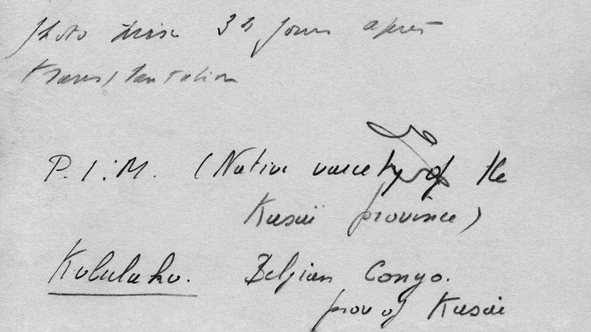 Photo prise 32 jours après
transplantation
P.I.M. (Native variety of the
Kasaï province)
Kulu. Belgian Congo.
prov of Kasai